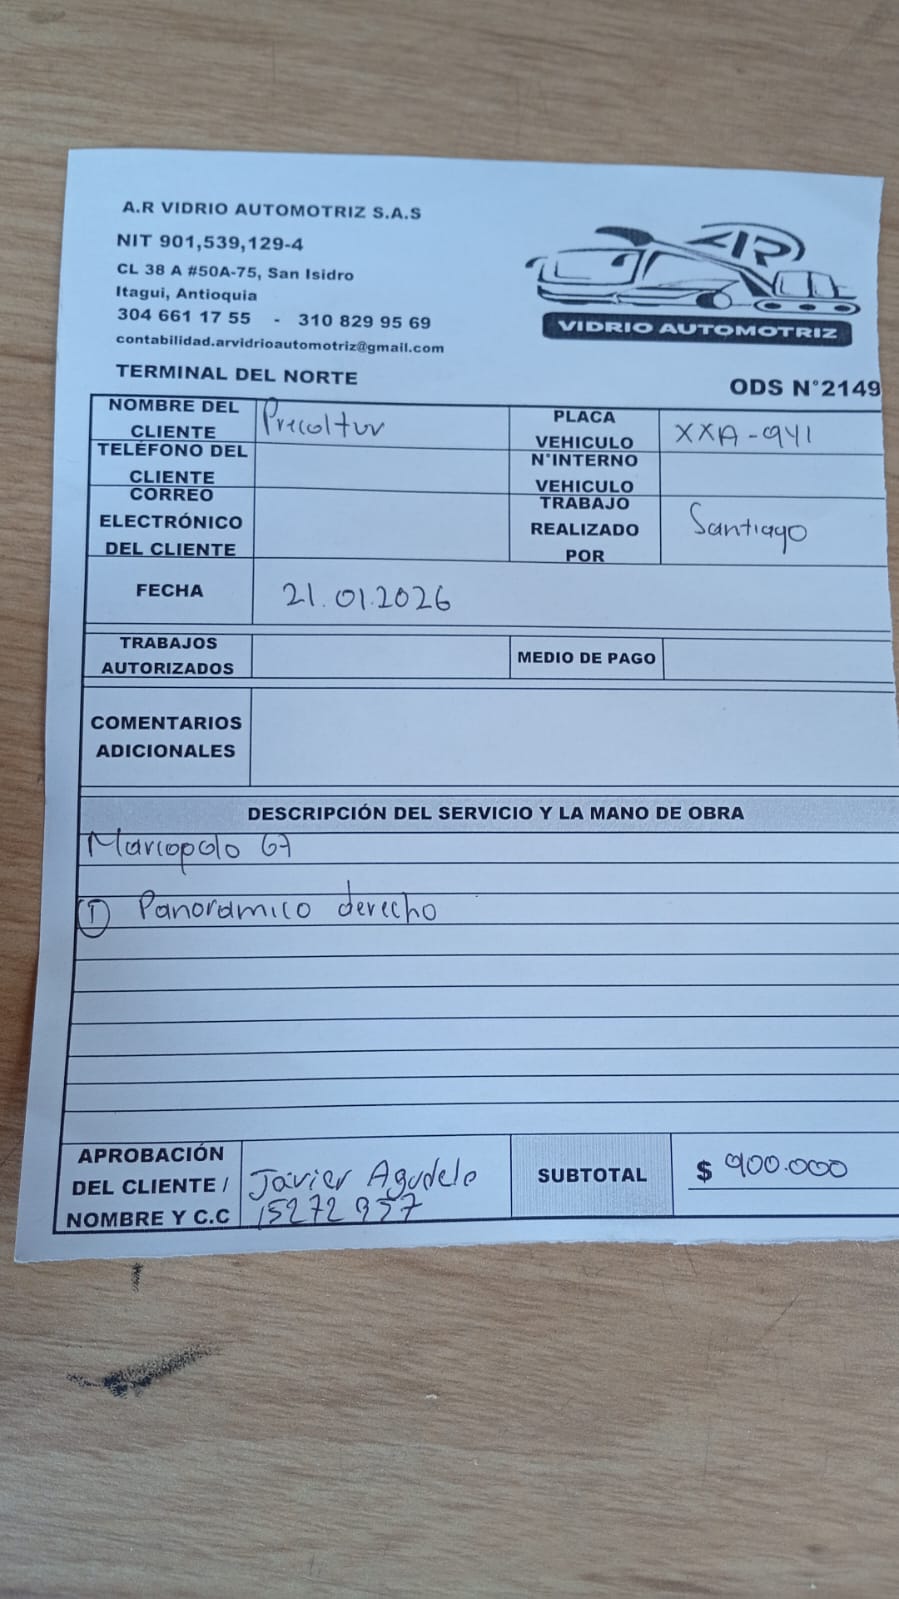 A.R VIDRIO AUTOMOTRIZ S.A.S
NIT 901,539,129-4
CL 38 A #50A-75, San Isidro
Itagui, Antioquia
304 661 17 55 - 310 829 95 69
contabilidad.arvidrioautomotriz@gmail.com
TERMINAL DEL NORTE
AR
VIDRIO AUTOMOTRIZ
ODS N°2149
NOMBRE DEL CLIENTE Precoltur
PLACA VEHICULO XXA-941
TELÉFONO DEL CLIENTE
N°INTERNO VEHICULO
CORREO ELECTRÓNICO DEL CLIENTE
TRABAJO REALIZADO POR Santiago
FECHA 21.01.2026
TRABAJOS AUTORIZADOS
MEDIO DE PAGO
COMENTARIOS ADICIONALES
DESCRIPCIÓN DEL SERVICIO Y LA MANO DE OBRA
Marcopolo G7
1 Panoramico derecho
APROBACIÓN DEL CLIENTE / NOMBRE Y C.C Javier Agudelo
SUBTOTAL $ 900.000